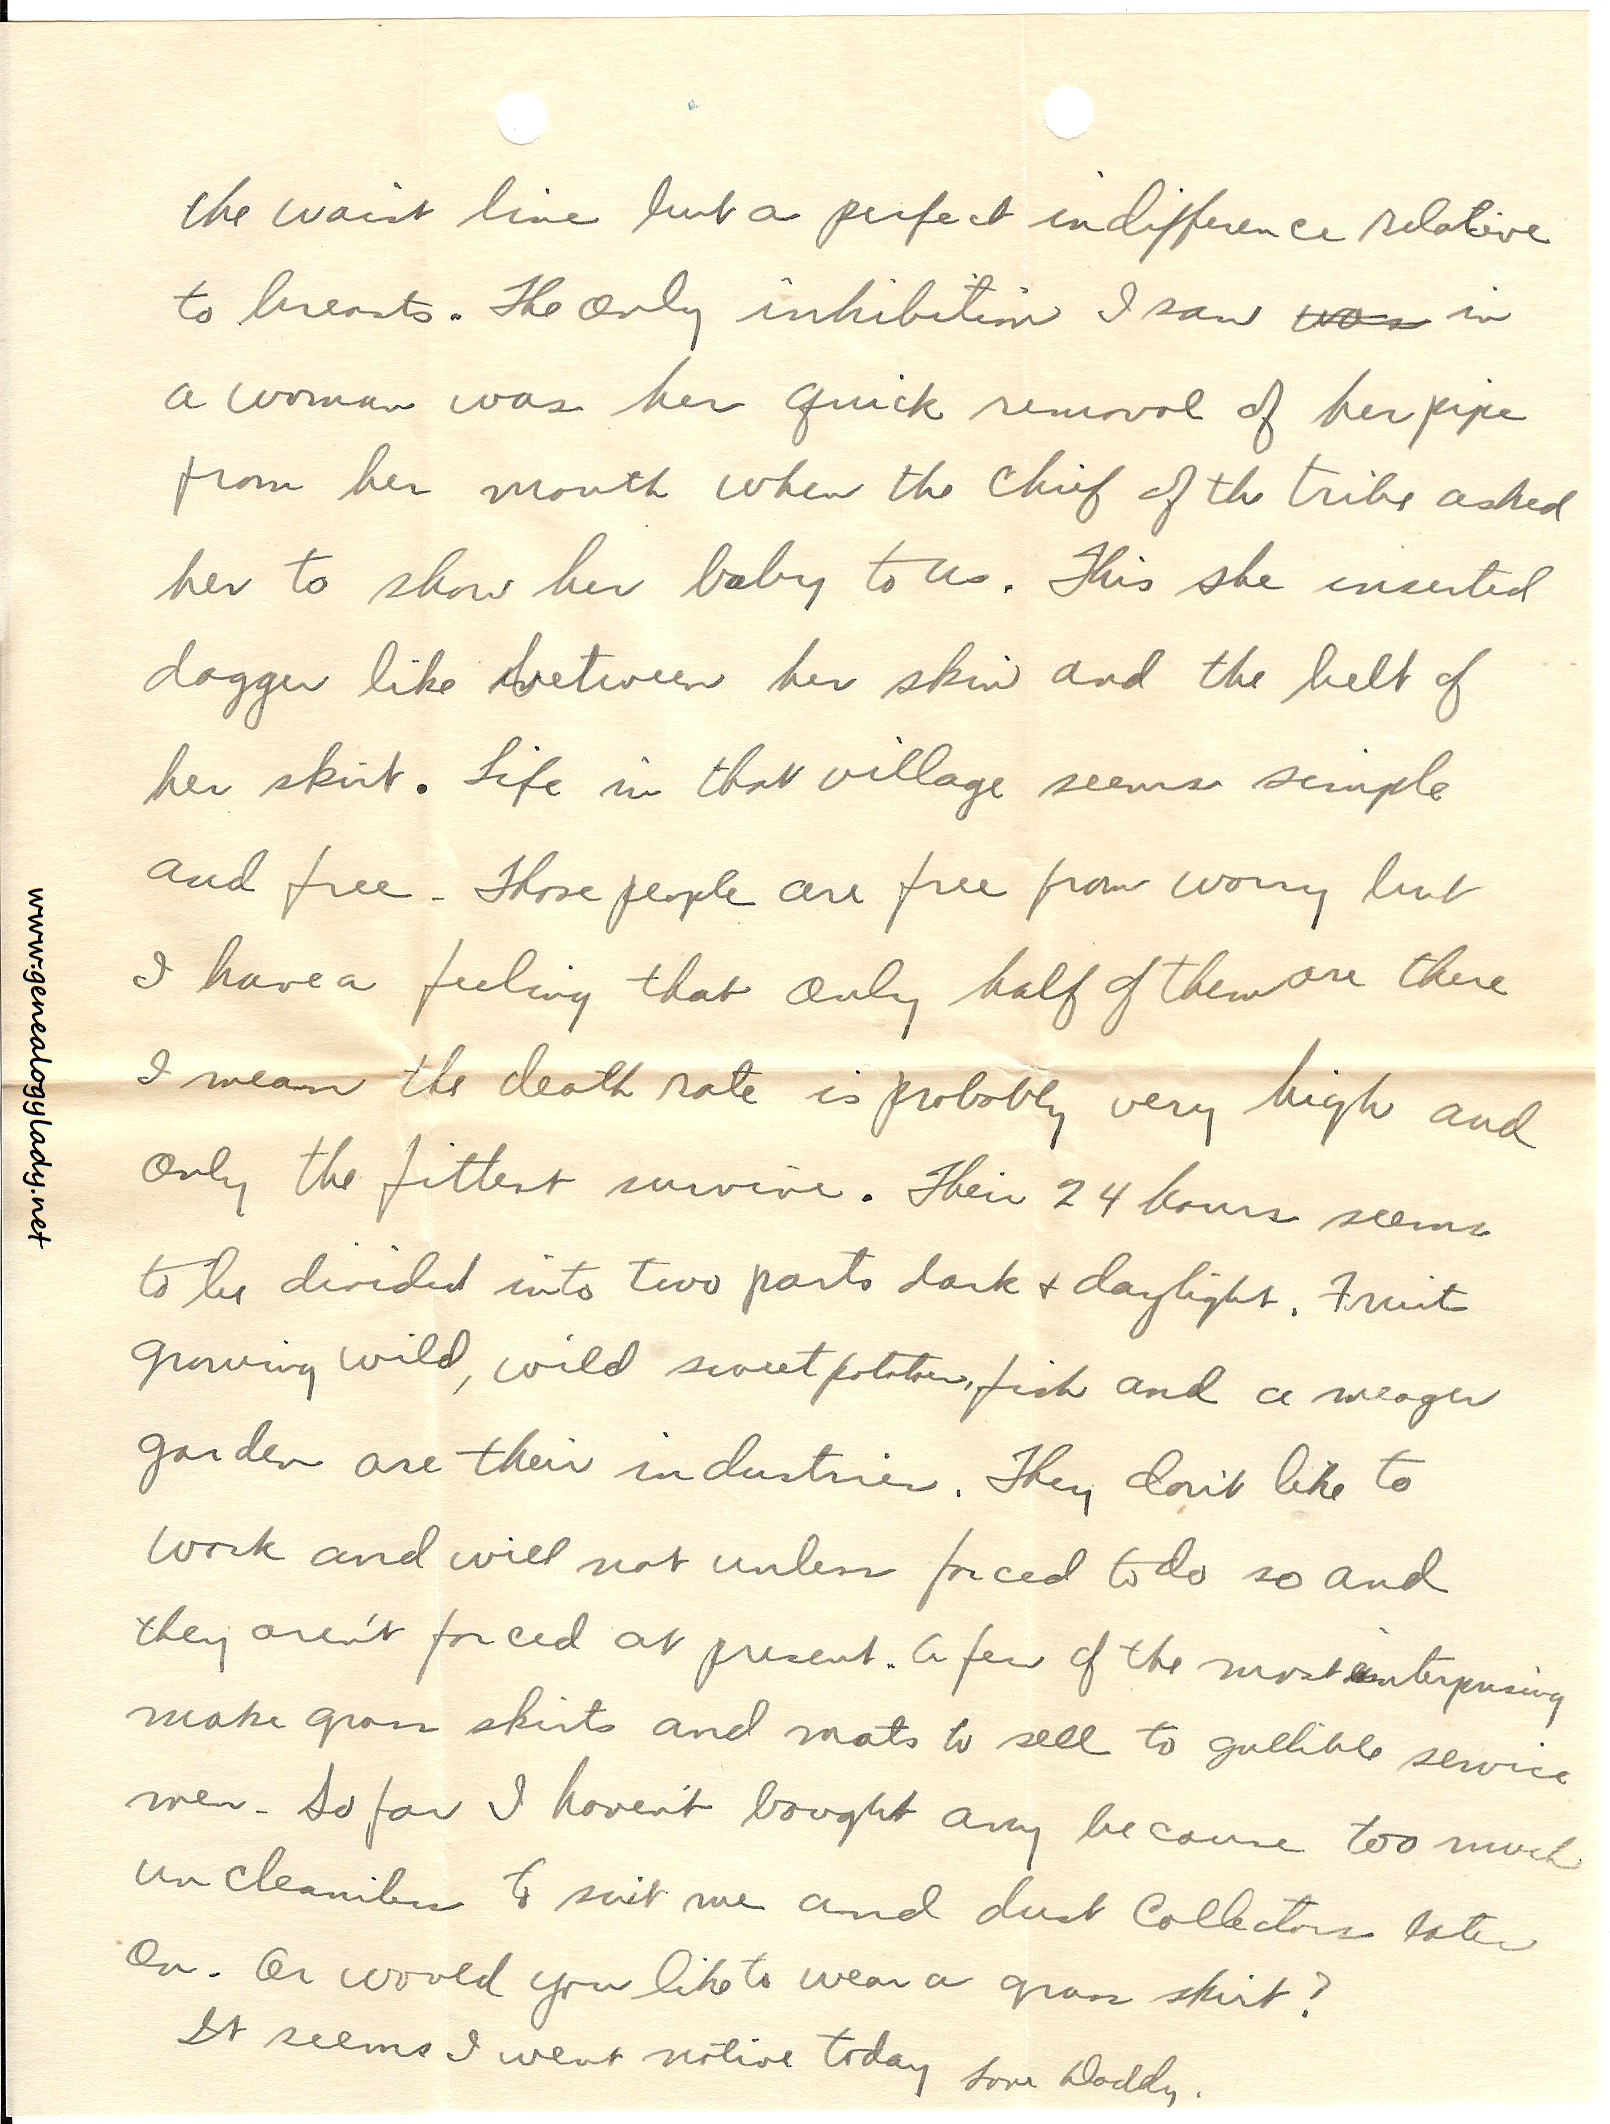 the waist line but a perfect indifference relative
to breasts. The only inhibition I saw was in
a woman was her quick removal of her pipe
from her mouth when the chief of the tribe asked
her to show her baby to us. This she inserted
dagger like between her skin and the belt of
her skirt. Life in that village seems simple
and free - Those people are free from worry but
I have a feeling that only half of them are there
I mean the death rate is probably very high and
only the fittest survive. Their 24 hours seems
to be divided into two parts dark + daylight. Fruit
growing wild, wild sweet potatoes, fish and a meager
garden are their industries. They don't like to
work and will not unless forced to do so and
they aren't forced at present. A few of the most enterprising
make grass skirts and mats to sell to gullible service
men - So far I haven't bought any because too much
uncleanliness to suit me and dust collectors later
on. Or would you like to wear a grass skirt?
It seems I went native today Love Daddy.
www.genealogylady.net